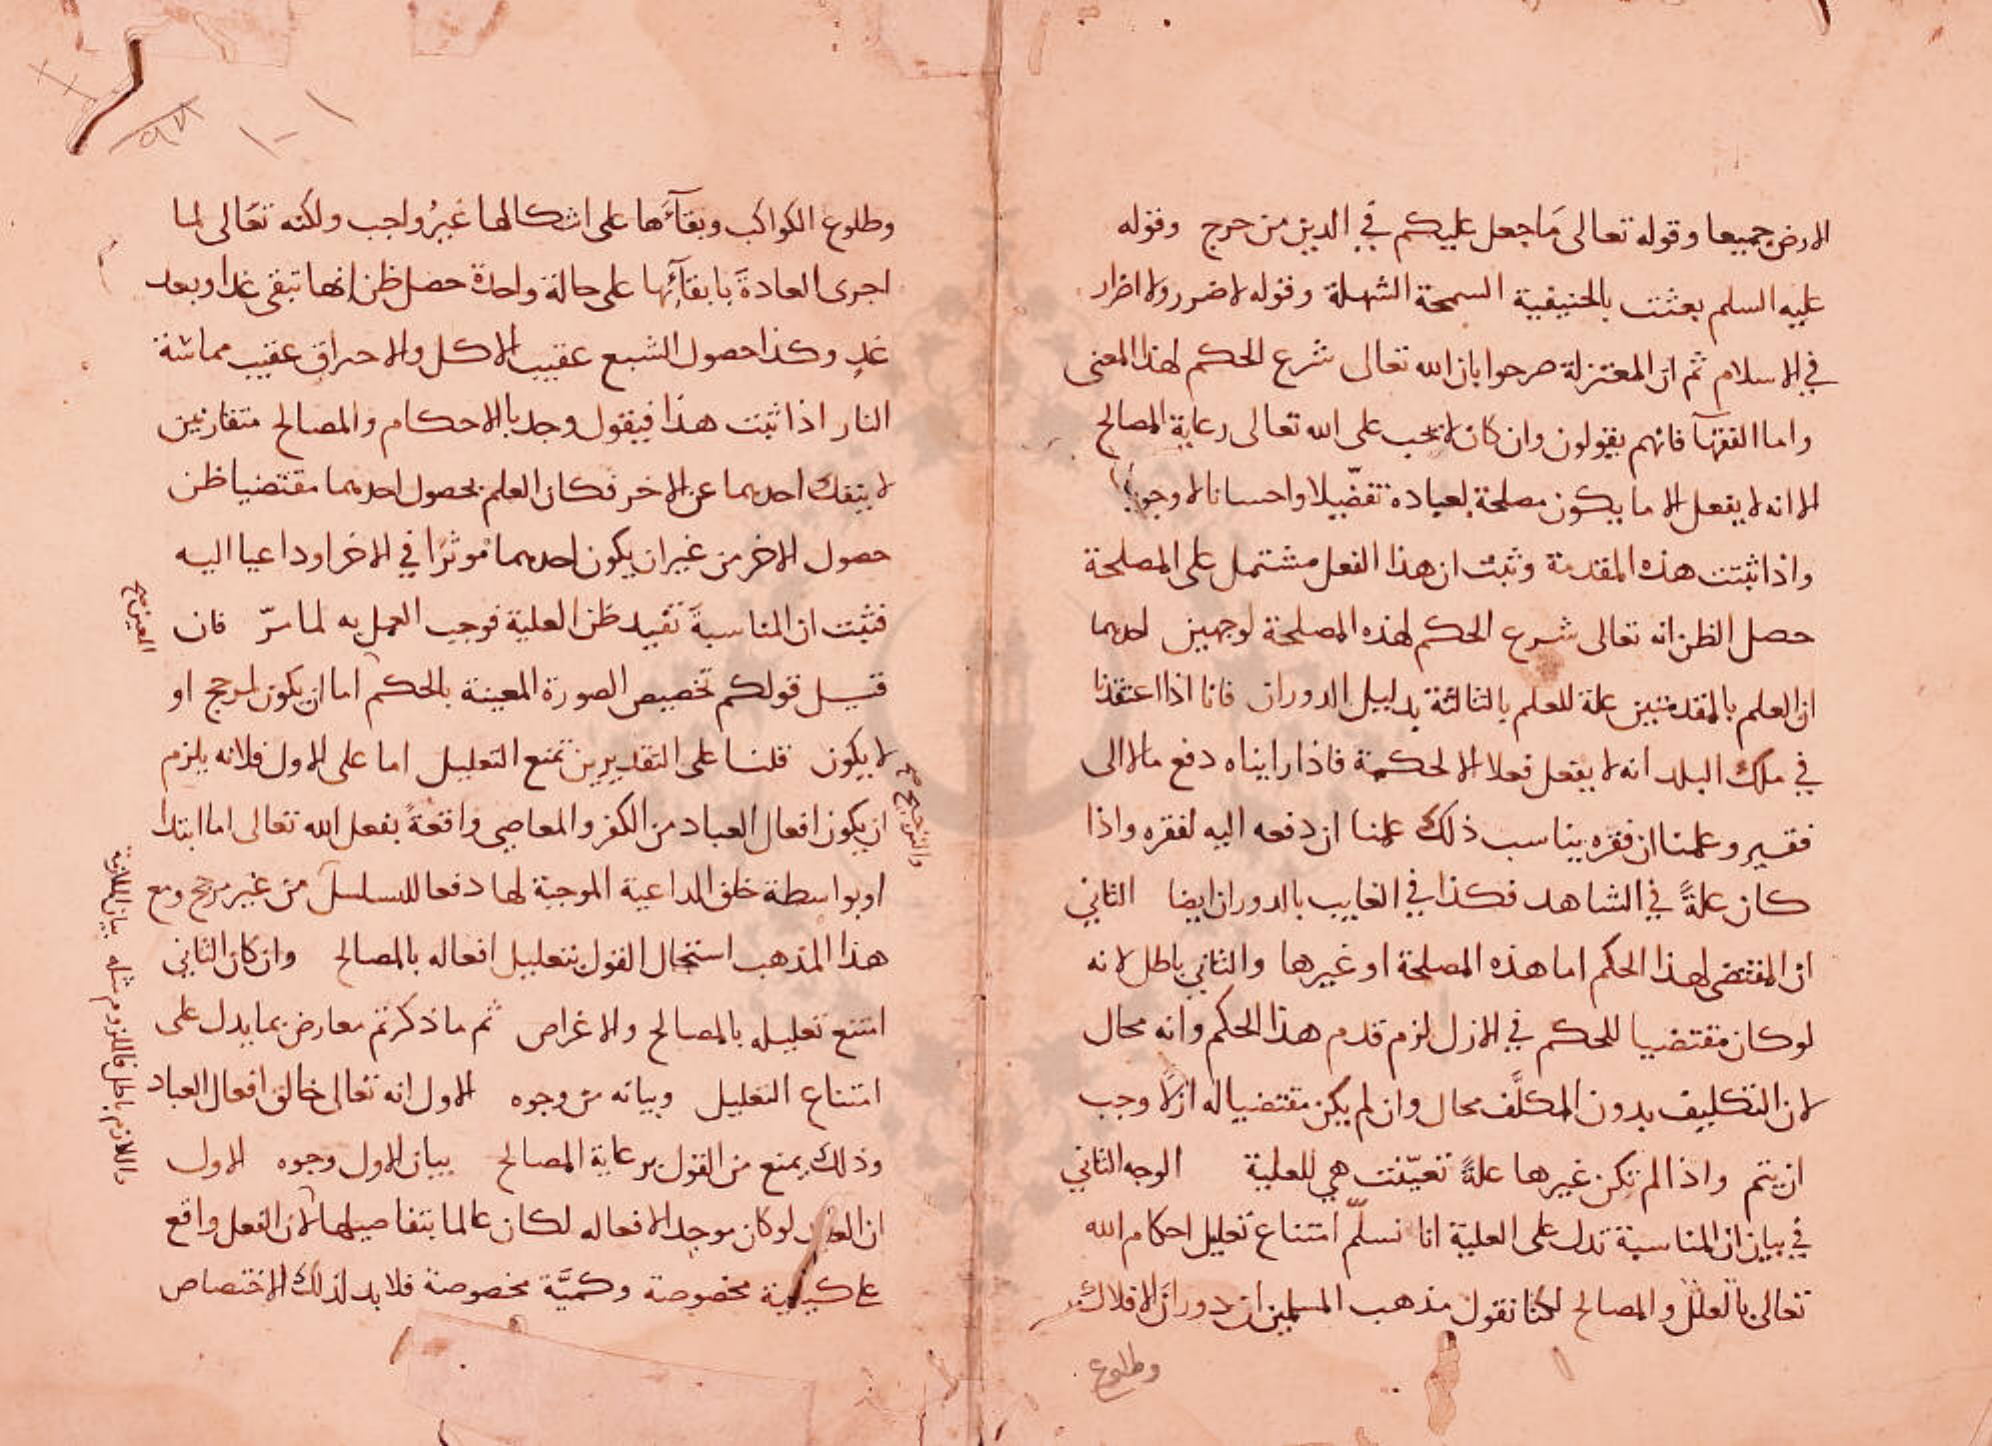 الارض جميعا وقوله تعالى مَا جعل عليكم في الدين من حرج وقوله
عليه السلم بعثت بالحنيفية السمحة السهلة وقوله لا ضرر ولا اضرار
في الاسلام ثم ان المعتزلة صرحوا بان الله تعالى شرع الحكم لهذا المعنى
واما الفقهآ فانهم يقولون وان كان لا يجب على الله تعالى رعاية المصالح
الا انه لا يفعل الا ما يكون مصلحة لعباده تفضّلا واحسانا لا وجوبا
واذا ثبتت هذه المقدمة وثبت ان هذا الفعل مشتمل على المصلحة
حصل الظن انه تعالى شرع الحكم لهذه المصلحة لوجهين احدهما
ان العلم بالمقدمتين علة للعلم بالثالثة بدليل الدوران فانا اذا اعتقدنا
في ملك البلد انه لا يفعل فعلا الا لحكمة فاذا رايناه دفع مالا الى
فقير وعلمنا ان فقره يناسب ذلك علمنا ان دفعه اليه لفقره واذا
كان علةً في الشاهد فكذا في الغايب بالدوران ايضا الثاني
ان المقتضى لهذا الحكم اما هذه المصلحة او غيرها والثاني باطل لانه
لو كان مقتضيا للحكم في الازل لزم قدم هذا الحكم وانه محال
لان التكليف بدون المكلَّف محال وان لم يكن مقتضيا له ازلًا وجب
ان يتم واذا لم تكن غيرها علةً تعيّنت هي للعلية الوجه الثاني
في بيان ان المناسبة تدل على العلية انا نسلّم امتناع تعليل احكام الله
تعالى بالعلل والمصالح لكنا نقول مذهب المسلمين ان دوران الافلاك
وطلوع
وطلوع الكواكب وبقآءَها على اشكالها غيرُ واجب ولكنه تعَالى لما
اجرى العادةَ بابقآئِها على حالة واحدة حصل ظن انها تبقى غدا وبعد
غدٍ وكذا حصول الشبع عقيب الاكل والاحراق عقيب مماسّة
النار اذا ثبت هذا فيقول وجد بالاحكام والمصالح متقارنين
لا ينفك احدهما عن الاخر فكان العلم بحصول احدهما مقتضيا ظن
حصول الاخر من غير ان يكون احدهما موثرًا في الاخر او داعيا اليه
فثبت ان المناسبةَ تُفيد ظن العلية فوجب العمل به لما مرّ فان
قيل قولكم تخصيص الصورة المعينة بالحكم اما ان يكون لمرجح او
لا يكون قلنا على التقديرين تمنع التعليل اما على الاول فلانه يلزم
والترجيح صح
ان يكون افعال العباد من الكفر والمعاصي واقعةً بفعل الله تعالى اما ابتدا
او بواسطة خلق الداعية الموجبة لها دفعا للتسلسل من غير مرجح ومع
هذا المذهب استحال القول بتعليل افعاله بالمصالح وان كان الثاني
امتنع تعليله بالمصالح والاغراض ثم ما ذكرتم معارض بما يدل على
امتناع التعليل وبيانه من وجوه الاول انه تعالى خالق افعال العباد
وذلك يمنع من القول برعاية المصالح بيان الاول وجوه الاول
ان العبد لو كان موجدا لافعاله لكان عالما بتفاصيلها لان الفعل واقع
على كيفية مخصوصة وكميَّة مخصوصة فلا بد لذلك الاختصاص
واللازم باطل فالملزوم مثله بيان الملازمة